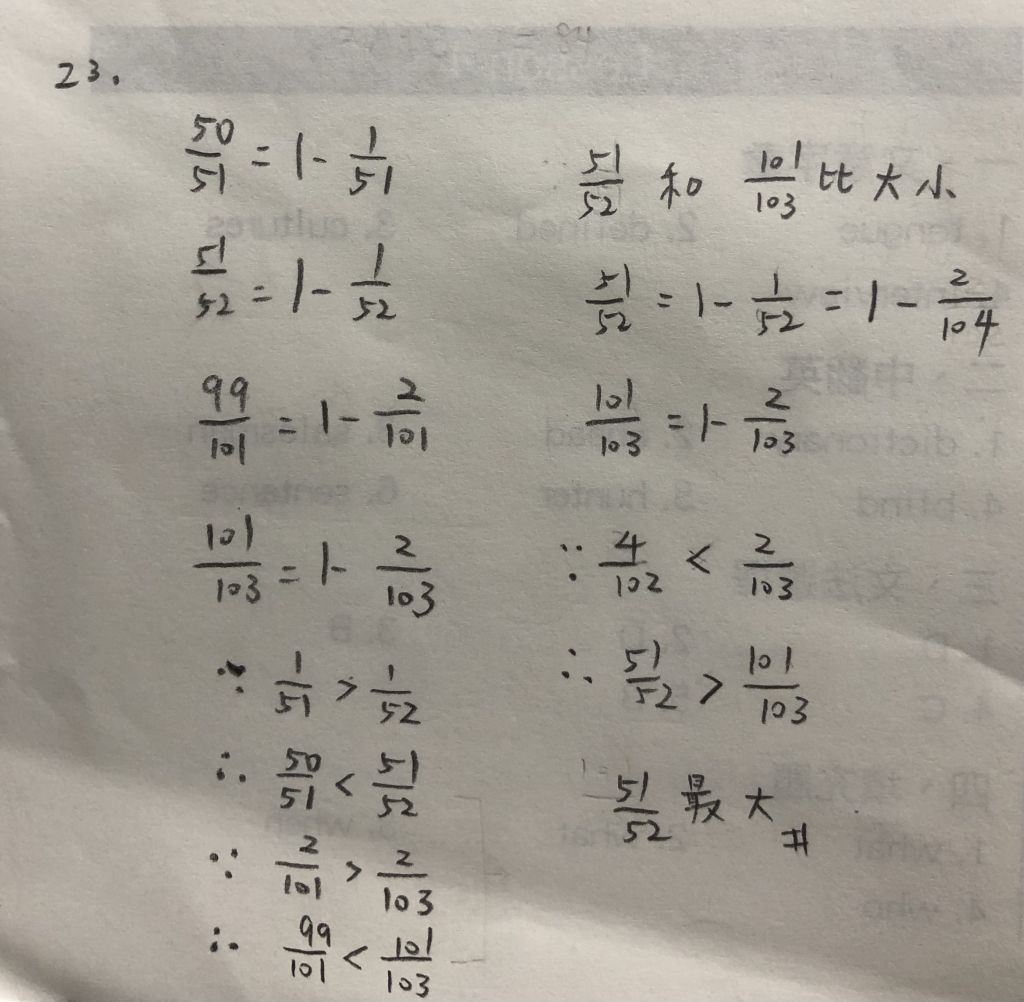 23.
50/51 = 1 - 1/51
51/52 = 1 - 1/52
99/101 = 1 - 2/101
101/103 = 1 - 2/103
∵ 1/51 > 1/52
∴ 50/51 < 51/52
∵ 2/101 > 2/103
∴ 99/101 < 101/103
51/52 和 101/103 比大小
51/52 = 1 - 1/52 = 1 - 2/104
101/103 = 1 - 2/103
∵ 4/102 < 2/103
∴ 51/52 > 101/103
51/52 最大 #